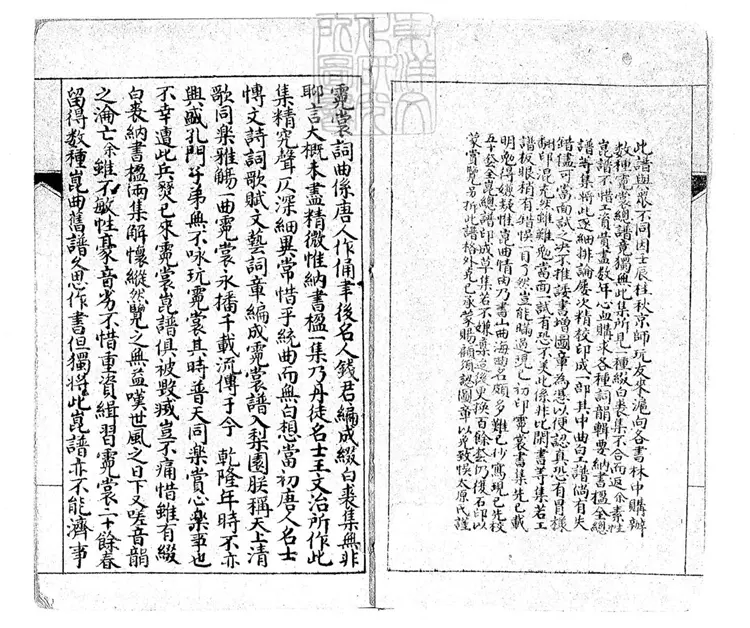 此譜與眾不同因壬辰桂秋京師玩友來滬向各書林中購辦
數種霓裳總譜竟獨無此集所見一種綴白裘集不合而返余素性
崑譜不惜工資費盡數年心血購求各種詞韻輯要納書楹全總
譜等集將此逐細排論屢次精校印成一部其中曲白工譜倘有失
錯儘可當面試之決不推諉書增圖章為憑以便認真恐有冒樣
翻印混充然雖難免當面一試有恐不美此係非比閑書等集若工
譜板眼稍有錯悞一目了然豈能瞞過現已初印霓裳書集先已載
明免得嫌疑惟崑曲情由乃書山曲海曲名頗多難已抄寫現已先校
五十套全崑總譜印成草集若不嫌棄之後史換百餘套仍復石印以
蒙賞覽另析此譜格外克己承蒙賜顧須認圖章以免致悞太原氏謹
霓裳詞曲係唐人作俑聿後名人錢君編成綴白裘集無非
聊言大概未盡精微惟納書楹一集乃丹徒名士王文治所作此
集精究聲仄深細異常惜乎統曲而無白想當初唐人名士
博文詩詞歌賦文藝詞章編成霓裳譜入梨園朕稱天上清
歌同樂雅觴一曲霓裳永播千載流傳于今 乾隆年時不亦
興盛孔門子弟無不咏玩霓裳其時普天同樂賞心樂事也
不幸遭此兵燹已來霓裳崑譜俱被毀滅豈不痛惜雖有綴
白裘納書楹両集解懷縱然覽之無益嘆世風之日下又嗟音韻
之淪亡余雖不敏性豪音劣不惜重資緝習霓裳二十餘春
留得数種崑曲舊譜久思作書但獨將此崑譜亦不能濟事